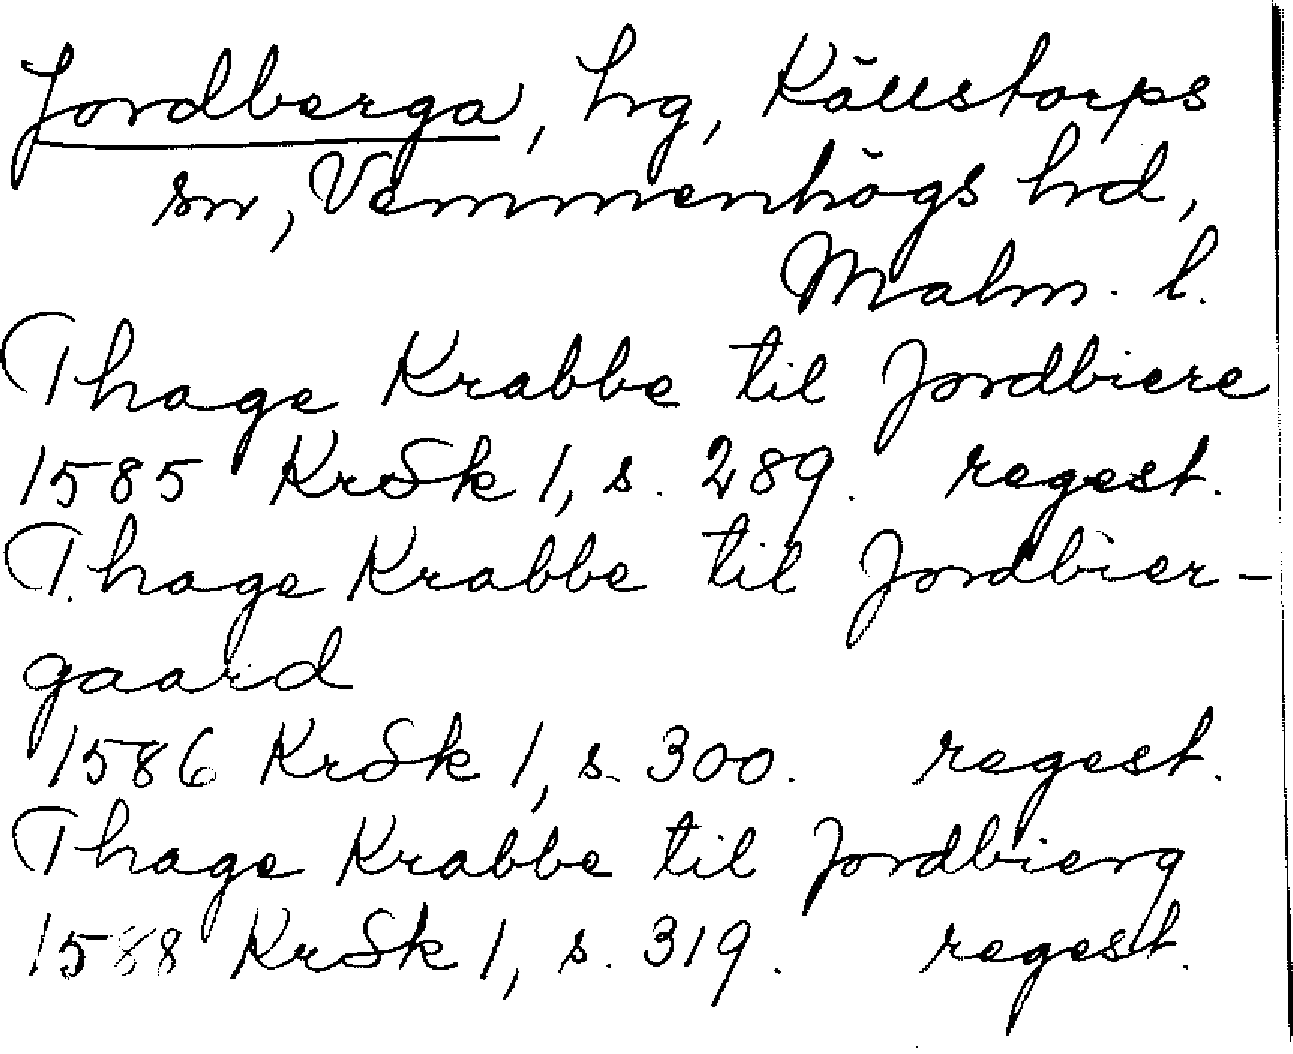 Jordberga, hrg, Källstorps
sn, Vemmenhögs hrd,
Malm. l.
Thage Krabbe til Jordbiere
1585 KrSk 1, s. 289. regest.
Thage Krabbe til Jordbier-
gaard
1586 KrSk 1, s. 300. regest.
Thage Krabbe til Jordbierg
1588 KrSk 1, s. 319. regest.